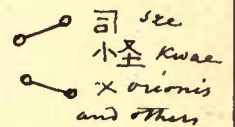 司 sze
怪 Kwae
χ orionis
and others